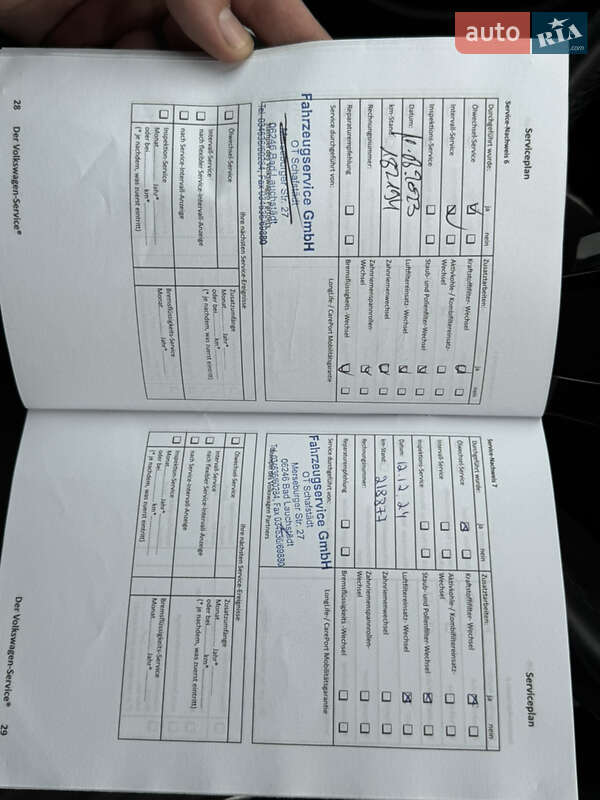 auto RIA.com
Serviceplan
Service-Nachweis 6
Durchgeführt wurde: ja nein
Ölwechsel-Service
Intervall-Service
Inspektions-Service
Datum: 11.08.2023
km-Stand: 182194
Rechnungsnummer:
Reparaturempfehlung
Service durchgeführt von:
Fahrzeugservice GmbH
OT Schafstädt
Merseburger Str. 27
06246 Bad Lauchstädt
Zusatzarbeiten: ja nein
Kraftstofffilter- Wechsel
Aktivkohle-/ Kombifiltereinsatz-
Wechsel
Staub- und Pollenfilter-Wechsel
Luftfiltereinsatz- Wechsel
Zahnriemenwechsel
Zahnriemenspannrollen-
Wechsel
Bremsflüssigkeits -Wechsel
LongLife-/ CarePort Mobilitätsgarantie
Ihre nächsten Service-Ereignisse
Ölwechsel-Service
Intervall-Service
nach flexibler Service-Intervall-Anzeige
nach Service-Intervall-Anzeige
Inspektion-Service
Monat Jahr*
oder bei km*
(* je nachdem, was zuerst eintritt)
Zusatzumfänge
Monat Jahr*
oder bei km*
(* je nachdem, was zuerst eintritt)
Bremsflüssigkeits-Service
Monat Jahr*
28 Der Volkswagen-Service®
Serviceplan
Service-Nachweis 7
Durchgeführt wurde: ja nein
Ölwechsel-Service
Intervall-Service
Inspektions-Service
Datum: 12.12.24
km-Stand: 218877
Rechnungsnummer:
Reparaturempfehlung
Service durchgeführt von:
Fahrzeugservice GmbH
OT Schafstädt
Merseburger Str. 27
06246 Bad Lauchstädt
Zusatzarbeiten: ja nein
Kraftstofffilter- Wechsel
Aktivkohle-/ Kombifiltereinsatz-
Wechsel
Staub- und Pollenfilter-Wechsel
Luftfiltereinsatz- Wechsel
Zahnriemenwechsel
Zahnriemenspannrollen-
Wechsel
Bremsflüssigkeits -Wechsel
LongLife-/ CarePort Mobilitätsgarantie
Ihre nächsten Service-Ereignisse
Ölwechsel-Service
Intervall-Service
nach flexibler Service-Intervall-Anzeige
nach Service-Intervall-Anzeige
Inspektion-Service
Monat Jahr*
oder bei km*
(* je nachdem, was zuerst eintritt)
Zusatzumfänge
Monat Jahr*
oder bei km*
(* je nachdem, was zuerst eintritt)
Bremsflüssigkeits-Service
Monat Jahr*
Der Volkswagen-Service® 29